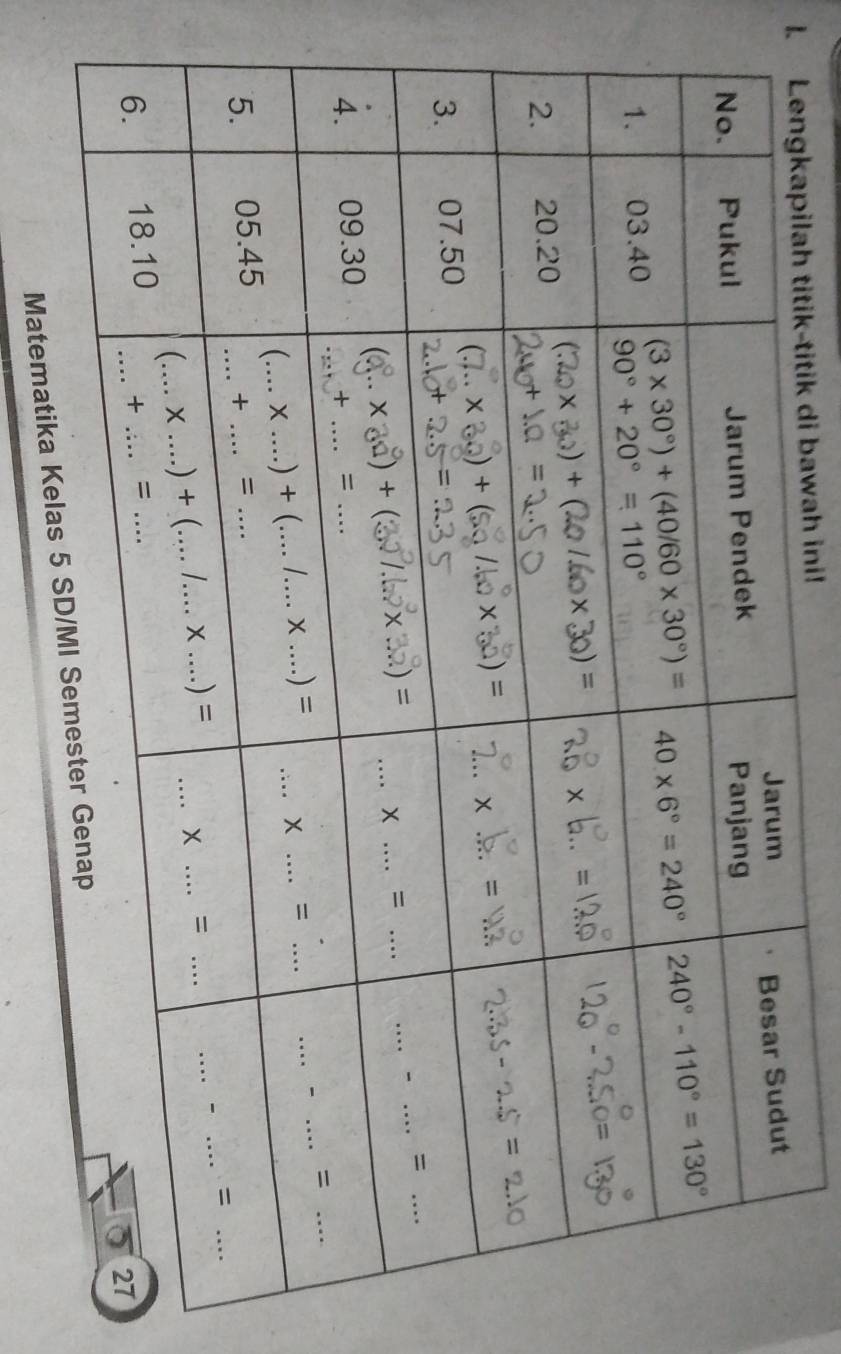 I. Lengkapilah titik-titik di bawah ini!
No. Pukul Jarum Pendek Jarum Panjang Besar Sudut
1. 03.40 (3 x 30°) + (40/60 x 30°) = 40 x 6° = 240° 240° - 110° = 130°
90° + 20° = 110°
2. 20.20 (20 x 30) + (20/60 x 30) = 20° x 6° = 120° 120° - 250° = 130°
240 + 10 = 250
3. 07.50 (7° x 30°) + (50°/60° x 30°) = 7° x 6° = 42° 235 - 25 = 210
210 + 25 = 235
4. 09.30 (9° x 30°) + (30°/60° x 30°) = .... x .... = .... .... - .... = ....
+ .... = ....
5. 05.45 (.... x ....) + (.... /.... x ....) = .... x .... = .... .... - .... = ....
.... + .... = ....
6. 18.10 (.... x ....) + (.... /.... x ....) = .... x .... = .... .... - .... = ....
.... + .... = ....
Matematika Kelas 5 SD/MI Semester Genap
27